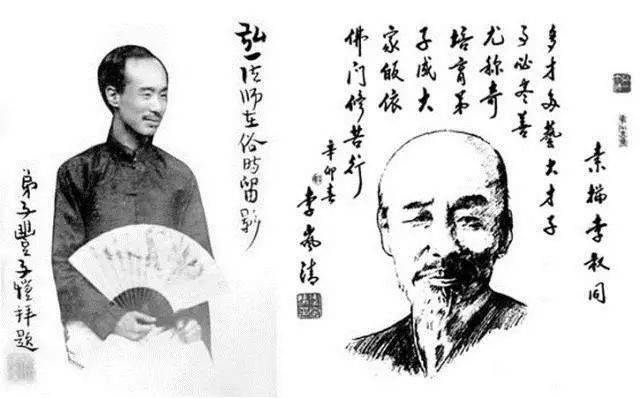 弘一法师在俗時留影
弟子豐子愷拜題
素描李叔同
多才多藝大才子
事必尽善
尤称奇
培育弟
子成大
家皈依
佛门修苦行
辛卯春
李嵐清